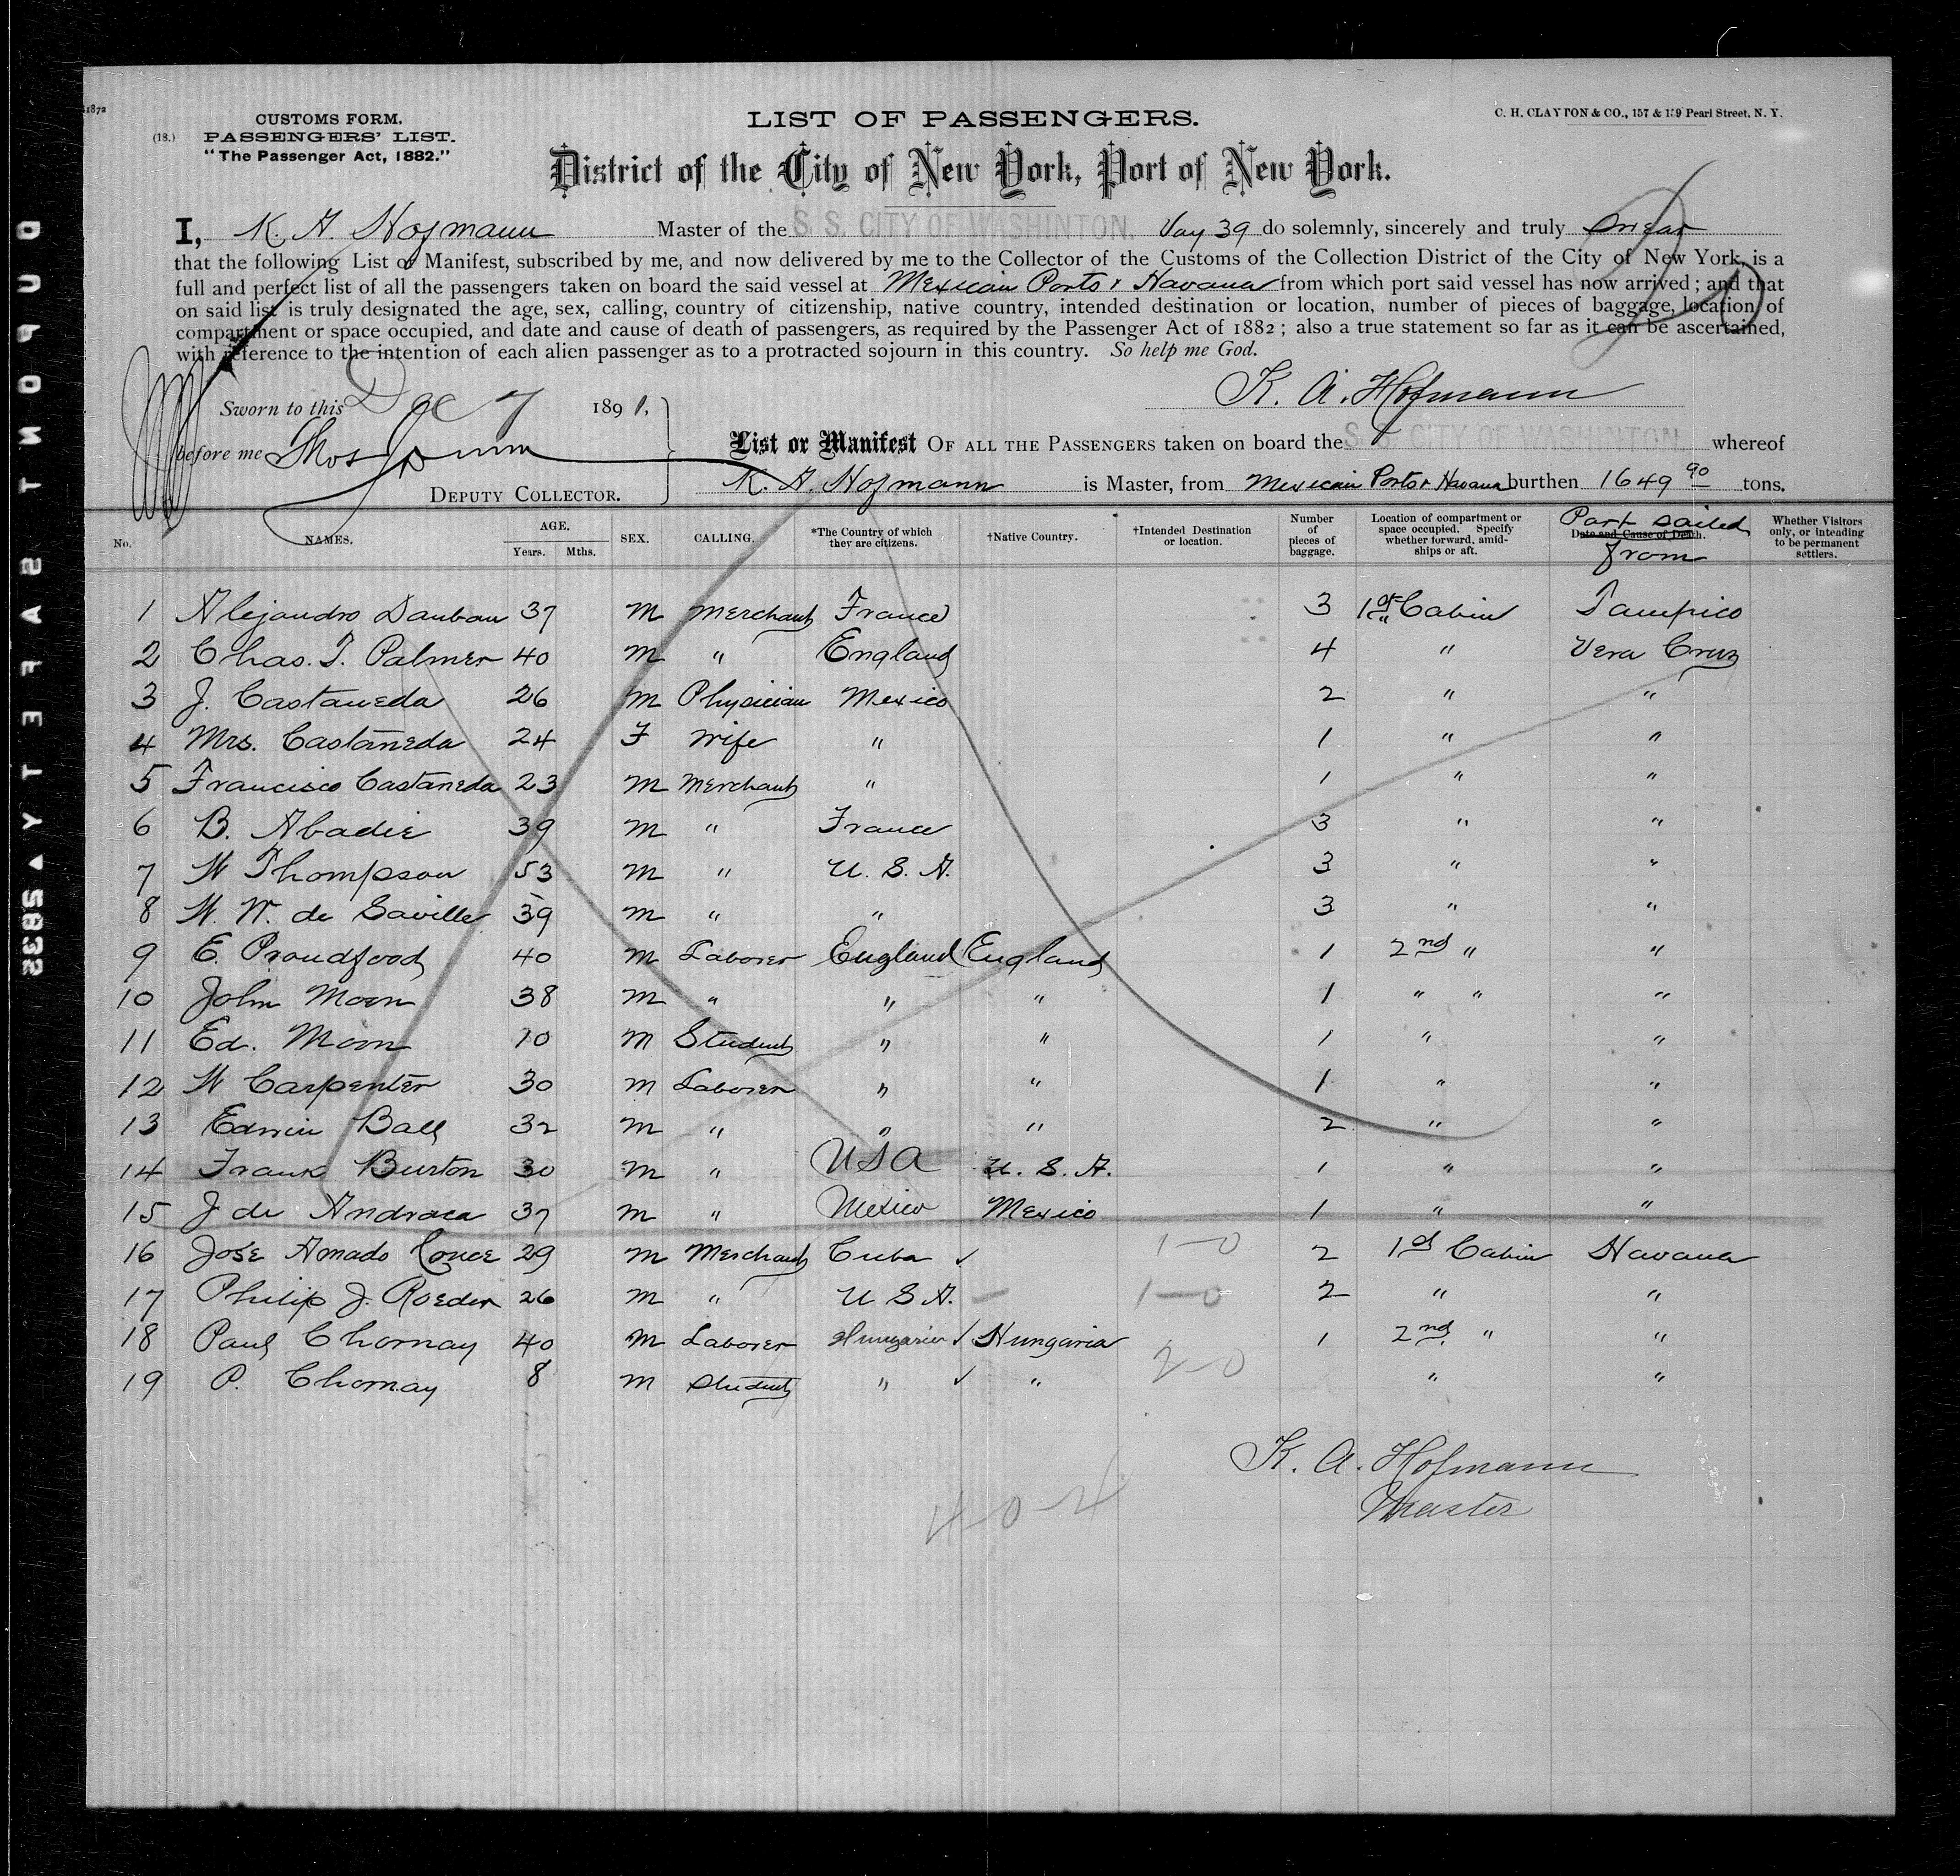 1872
CUSTOMS FORM.
(18.) PASSENGERS' LIST.
"The Passenger Act, 1882."
LIST OF PASSENGERS.
C. H. CLAYTON & CO., 157 & 159 Pearl Street, N. Y.
District of the City of New York, Port of New York.
I, K. A. Hofmann Master of the S. S. CITY OF WASHINTON. Voy 39 do solemnly, sincerely and truly swear
that the following List or Manifest, subscribed by me, and now delivered by me to the Collector of the Customs of the Collection District of the City of New York, is a
full and perfect list of all the passengers taken on board the said vessel at Mexican Ports & Havana from which port said vessel has now arrived; and that
on said list is truly designated the age, sex, calling, country of citizenship, native country, intended destination or location, number of pieces of baggage, location of
compartment or space occupied, and date and cause of death of passengers, as required by the Passenger Act of 1882; also a true statement so far as it can be ascertained,
with reference to the intention of each alien passenger as to a protracted sojourn in this country. So help me God.
K. A. Hofmann
Sworn to this Dec 7 1891,
before me Thos
DEPUTY COLLECTOR.
List or Manifest OF ALL THE PASSENGERS taken on board the S. S. CITY OF WASHINTON whereof
K. A. Hofmann is Master, from Mexican Ports & Havana burthen 1649 90 tons.
No. NAMES. AGE. Years. Mths. SEX. CALLING. *The Country of which they are citizens. †Native Country. †Intended Destination or location. Number of pieces of baggage. Location of compartment or space occupied. Specify whether forward, amidships or aft. Date and Cause of Death. Port sailed from Whether Visitors only, or intending to be permanent settlers.
1 Alejandro Daubau 37 M Merchant France 3 1st Cabin Tampico
2 Chas. T. Palmer 40 M " England 4 " Vera Cruz
3 J. Castaneda 26 M Physician Mexico 2 " "
4 Mrs. Castaneda 24 F Wife " 1 " "
5 Francisco Castaneda 23 M Merchant " 1 " "
6 B. Abadie 39 M " France 3 " "
7 W Thompson 53 M " U. S. A. 3 " "
8 W. W. de Saville 39 M " " 3 " "
9 E. Proudfood 40 M Laborer England England 1 2nd " "
10 John Moon 38 M " " " 1 " " "
11 Ed. Moon 10 M Student " " 1 " "
12 W Carpenter 30 M Laborer " " 1 " "
13 Edwin Ball 32 M " " " 2 " "
14 Frank Burton 30 M " USA U. S. A. 1 " "
15 J de Andraca 37 M " Mexico Mexico 1 " "
16 José Amado 29 M Merchant Cuba ✓ 1-0 2 1st Cabin Havana
17 Philip J. Roeder 26 M " U S A. — 1-0 2 " "
18 Paul Chornay 40 M Laborer Hungaria ✓ Hungaria 1 2nd " "
19 P. Chornay 8 M Student " ✓ " 2-0 " "
K. A. Hofmann
Master
4-0-4
DUPONT SAFETY ▲ 5832